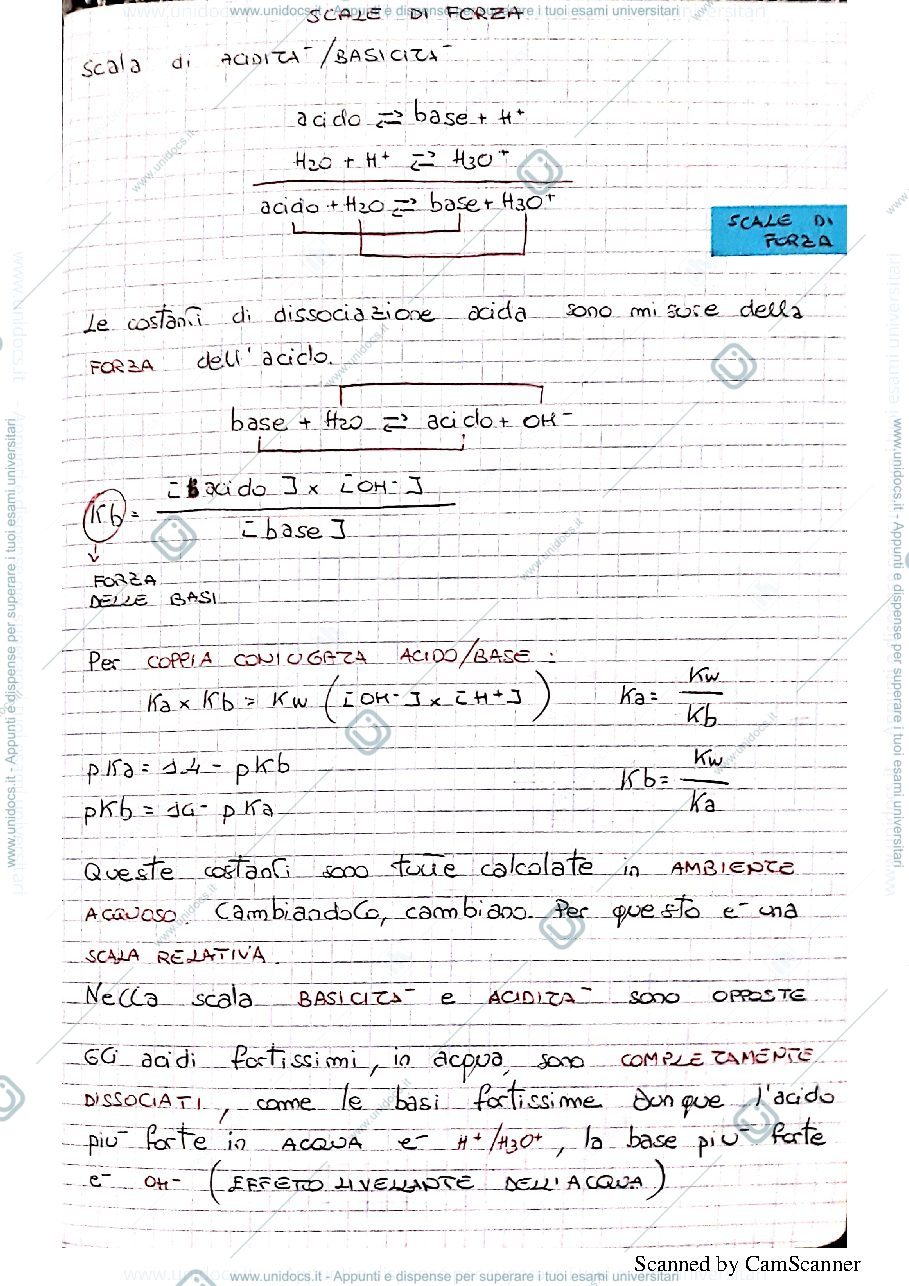 SCALE DI FORZA
Scala di ACIDITA'/BASICITA'
acido ⇄ base + H⁺
H2O + H⁺ ⇄ H3O⁺
acido + H2O ⇄ base + H3O⁺
SCALE DI
FORZA
Le costanti di dissociazione acida sono misure della
FORZA dell'acido.
base + H2O ⇄ acido + OH⁻
Kb = [acido] x [OH-] / [base]
FORZA
DELLE BASI
Per COPPIA CONIUGATA ACIDO/BASE :
Ka x Kb = Kw ([OH-] x [H+])
Ka = Kw / Kb
pKa = 14 - pKb
Kb = Kw / Ka
pKb = 14 - pKa
Queste costanti sono tutte calcolate in AMBIENTE
ACQUOSO. Cambiandolo, cambiano. Per questo e' una
SCALA RELATIVA.
Nella scala BASICITA' e ACIDITA' sono OPPOSTE
Gli acidi fortissimi, in acqua, sono COMPLETAMENTE
DISSOCIATI, come le basi fortissime. Dunque l'acido
piu' forte in ACQUA e' H⁺/H3O⁺, la base piu' forte
e' OH- (EFFETTO LIVELLANTE DELL'ACQUA)
Scanned by CamScanner
www.unidocs.it - Appunti e dispense per superare i tuoi esami universitari